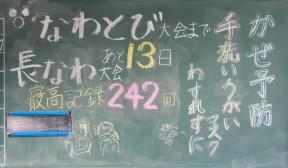 かぜ予防
手洗いうがい
マスク
わすれずに
なわとび大会まで
あと13日
長なわ大会
最高記録242回